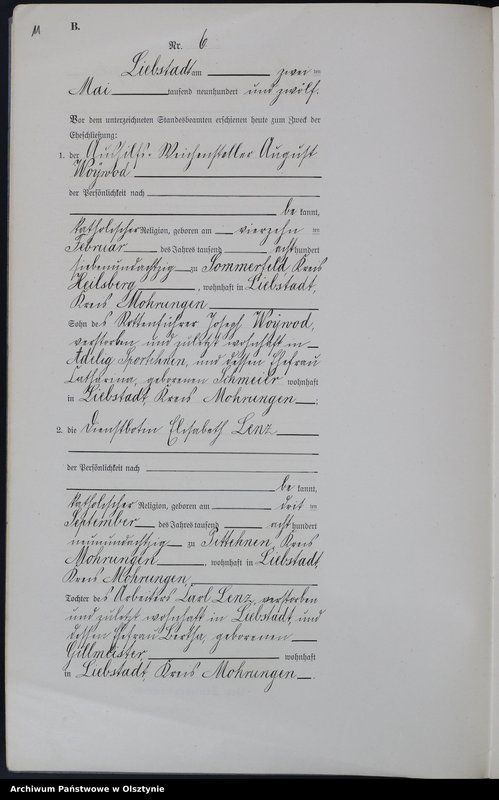 11
B.
Nr. 6
Liebstadt am zwei ten
Mai tausend neunhundert und zwölf.
Vor dem unterzeichneten Standesbeamten erschienen heute zum Zweck der
Eheschließung:
1. der Aushilfs-Weichensteller August
Woywod
der Persönlichkeit nach
be kannt,
katholischer Religion, geboren am vierzehn ten
Februar des Jahres tausend acht hundert
siebenundachtzig zu Sommerfeld Kreis
Heilsberg, wohnhaft in Liebstadt,
Kreis Mohrungen
Sohn des Rottenführer Joseph Woywod,
verstorben und zuletzt wohnhaft in
Adelig Sportehnen, und dessen Ehefrau
Catharina, geborenen Schmeier wohnhaft
in Liebstadt, Kreis Mohrungen;
2. die Dienstbotin Elisabeth Lenz
der Persönlichkeit nach
be kannt,
katholischer Religion, geboren am drit ten
September des Jahres tausend acht hundert
neunundachtzig zu Pittehnen, Kreis
Mohrungen, wohnhaft in Liebstadt
Kreis Mohrungen,
Tochter des Arbeiters Carl Lenz, verstorben
und zuletzt wohnhaft in Liebstadt, und
dessen Ehefrau Bertha, geborenen
Gillmeister, wohnhaft
in Liebstadt, Kreis Mohrungen.
Archiwum Państwowe w Olsztynie